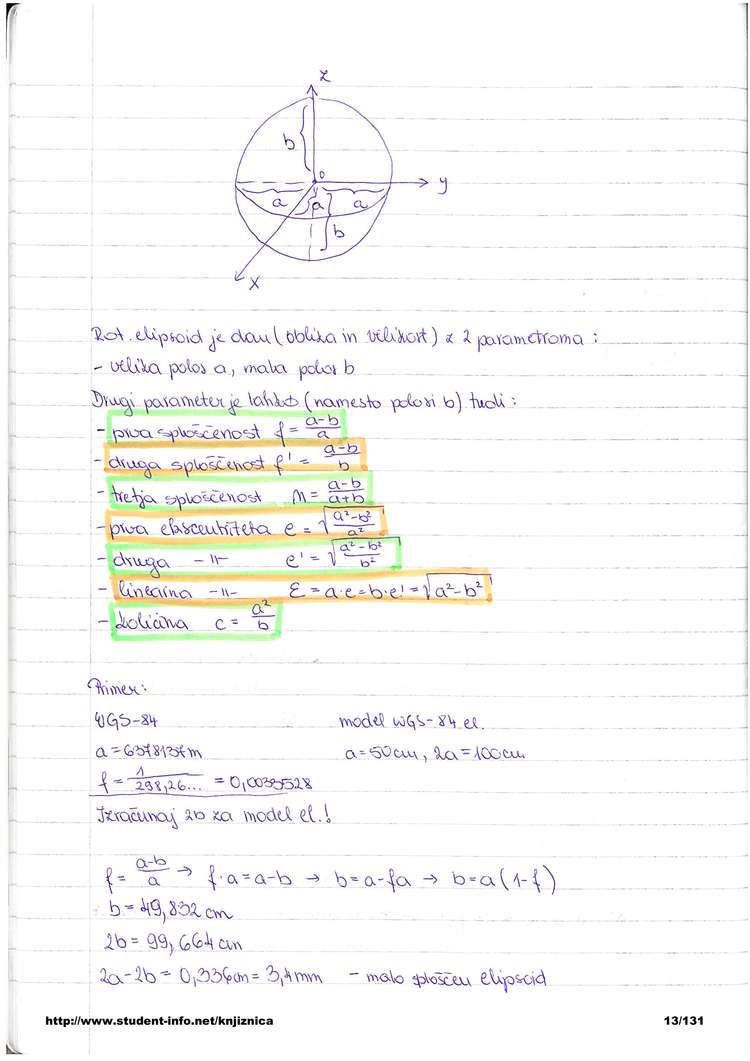 z
b
o
y
a
a
a
b
x
Rot. elipsoid je dan (oblika in velikost) z 2 parametroma :
- velika polos a, mala polos b
Drugi parameter je lahko (namesto polosi b) tudi :
- prva sploščenost f = (a-b)/a
- druga sploščenost f' = (a-b)/b
- tretja sploščenost n = (a-b)/(a+b)
- prva ekscentriteta e = √((a²-b²)/a²)
- druga -II- e' = √((a²-b²)/b²)
- linearna -II- E = a·e = b·e' = √(a²-b²)
- količina c = a²/b
Primer:
WGS-84 model WGS-84 el.
a = 6378137m a = 50cm, 2a = 100cm
f = 1/298,26... = 0,0033528
Izračunaj 2b za model el.!
f = (a-b)/a → f·a = a-b → b = a-fa → b = a(1-f)
b = 49,832 cm
2b = 99,664 cm
2a-2b = 0,336cm = 3,4mm - malo sploščen elipsoid
http://www.student-info.net/knjiznica 13/131